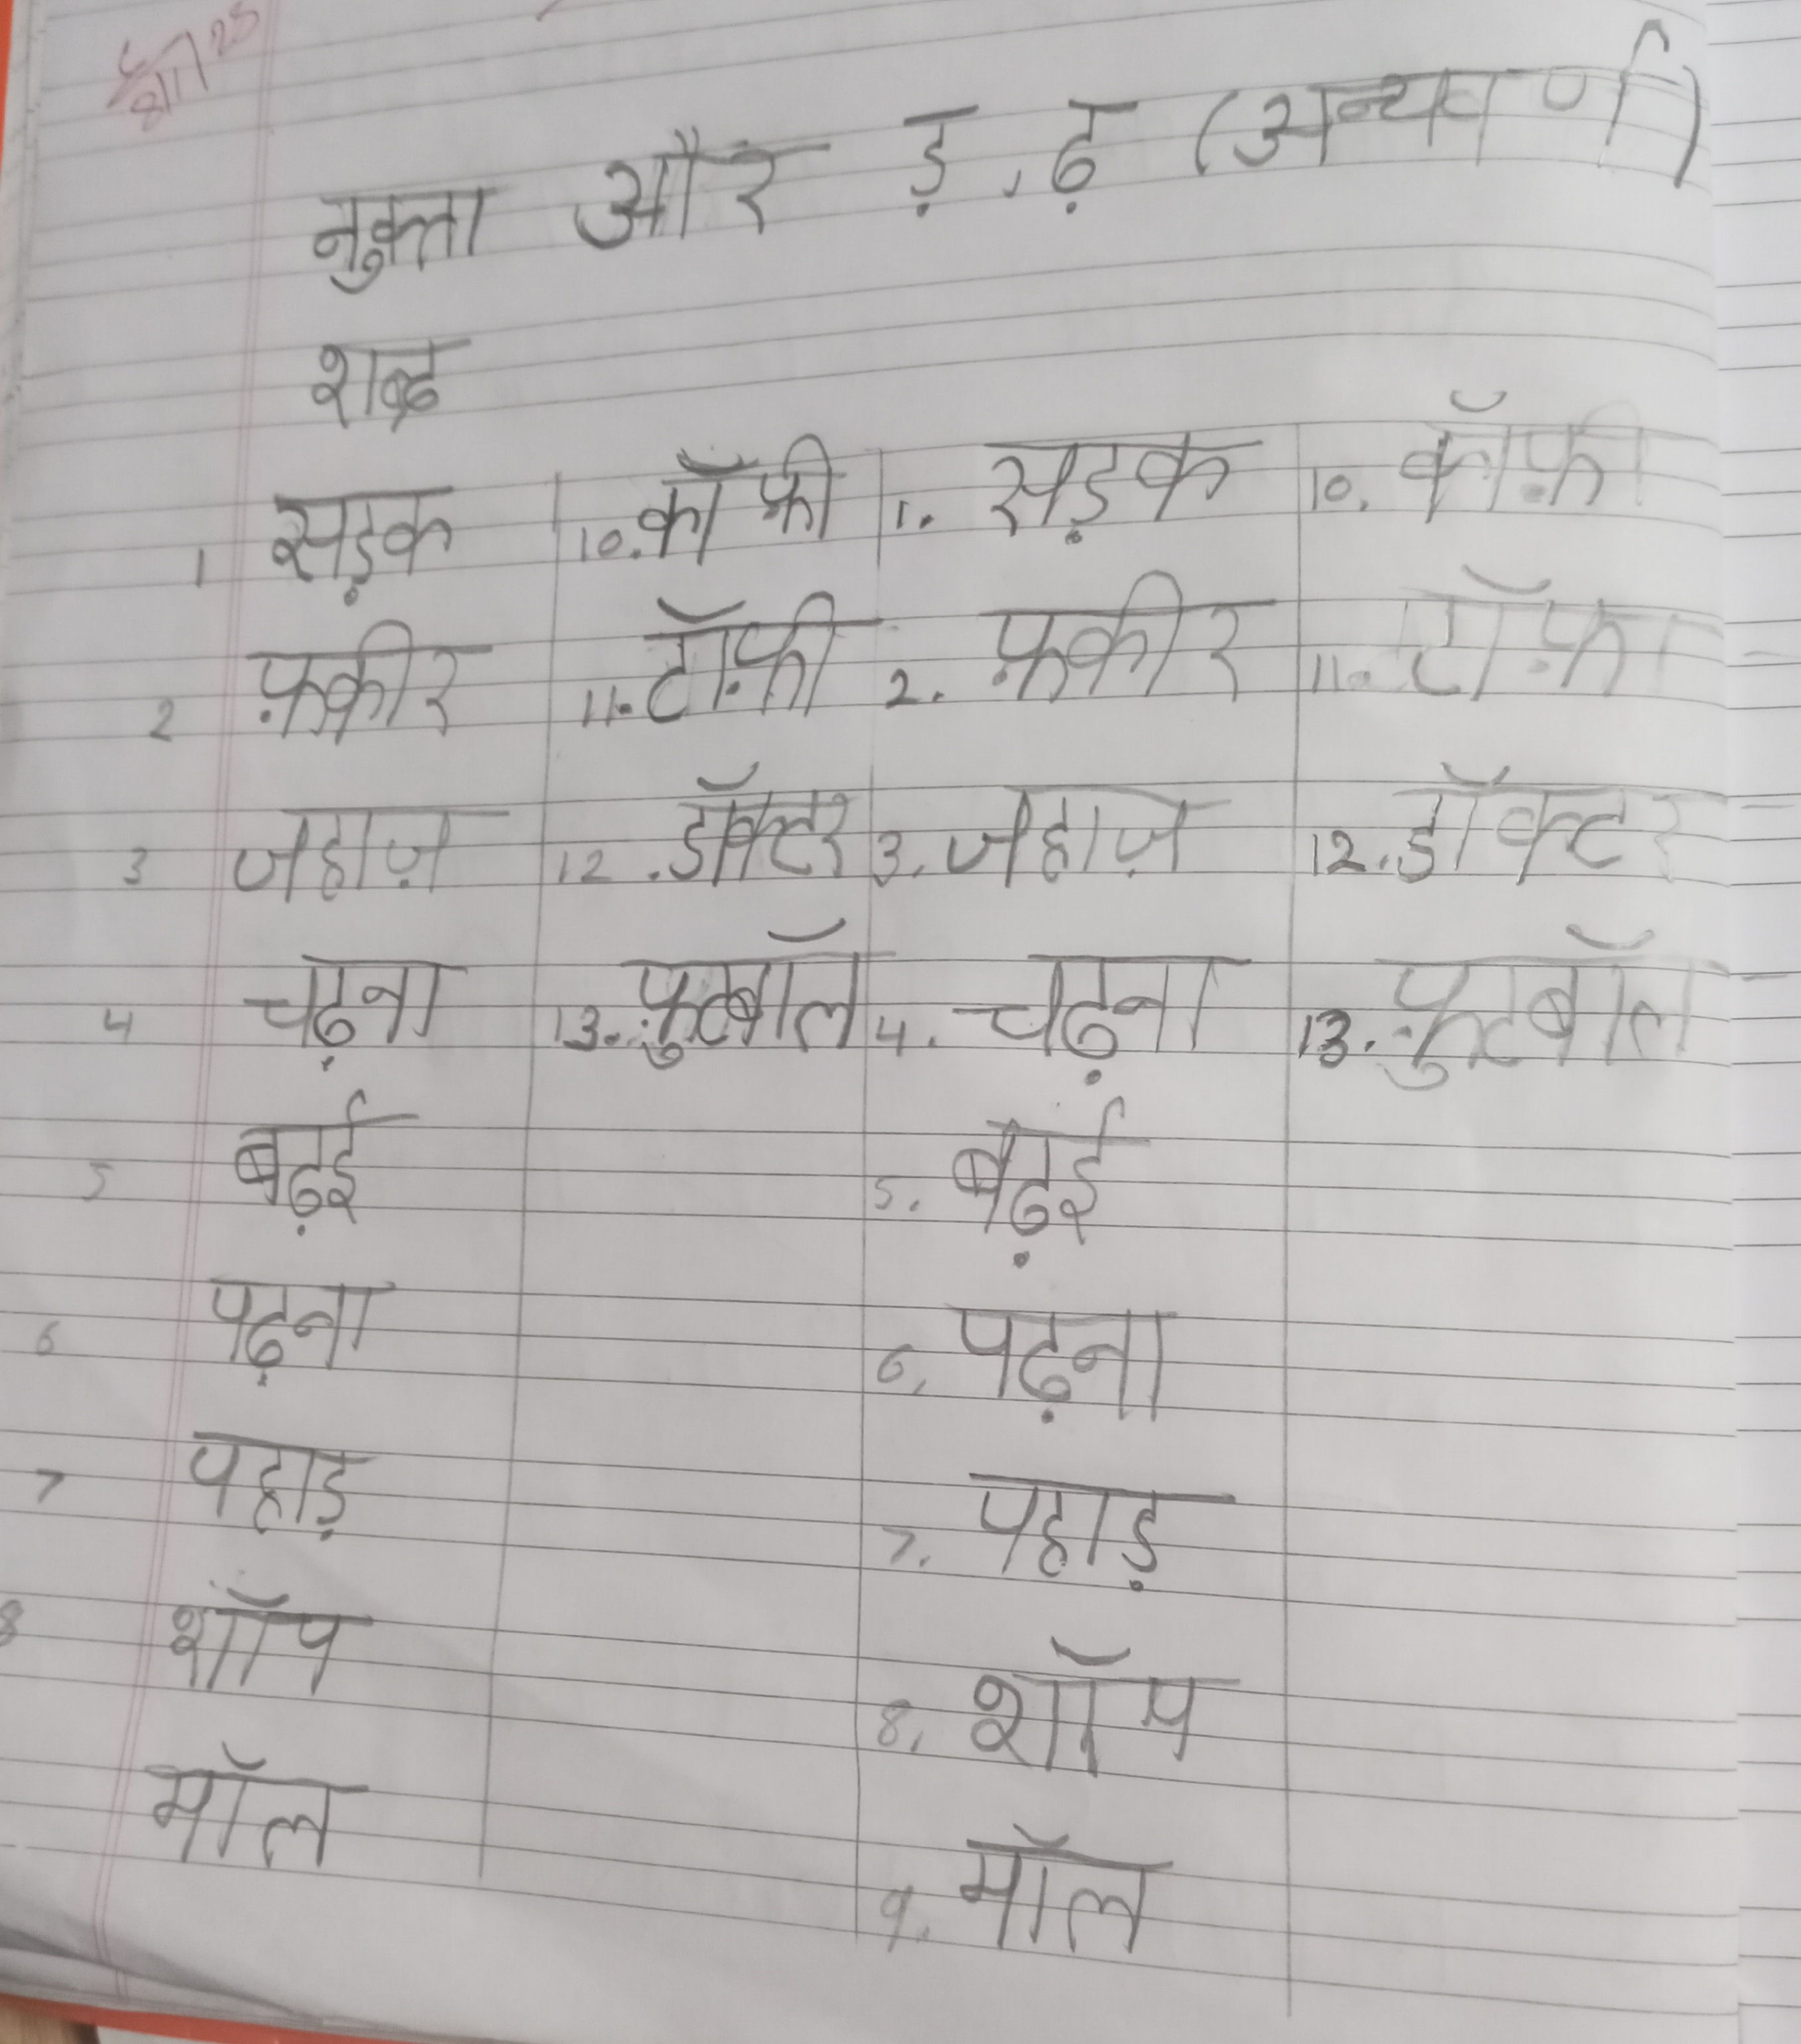 8/11/25
नुक्ता और ड़, ढ़ (अन्य वर्ण)
शब्द
1 सड़क 10. कॉफी 1. सड़क 10. कॉफ़ी
2 फ़कीर 11. टॉफ़ी 2. फ़कीर 11. टॉफ़ी
3 जहाज़ 12. डॉक्टर 3. जहाज़ 12. डॉक्टर
4 चढ़ना 13. फ़ुटबॉल 4. चढ़ना 13. फ़ुटबॉल
5 बढ़ई 5. बढ़ई
6 पढ़ना 6. पढ़ना
7 पहाड़ 7. पहाड़
8 शॉप 8. शॉप
मॉल 9. मॉल